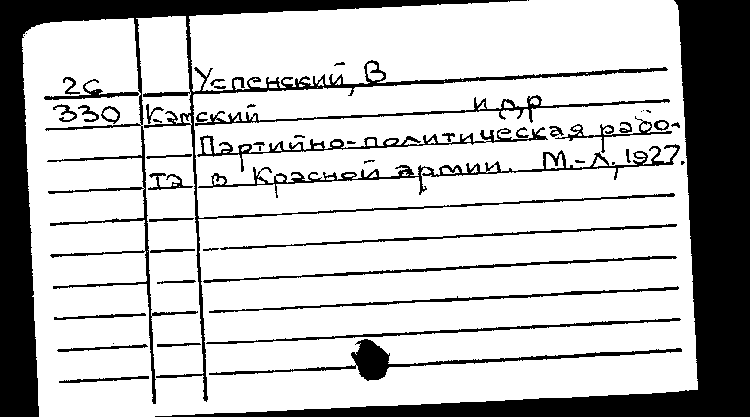 26 Успенский, В
330 Катский и др
Партийно-политическая рабо-
та в Красной армии. М.-Л, 1927.